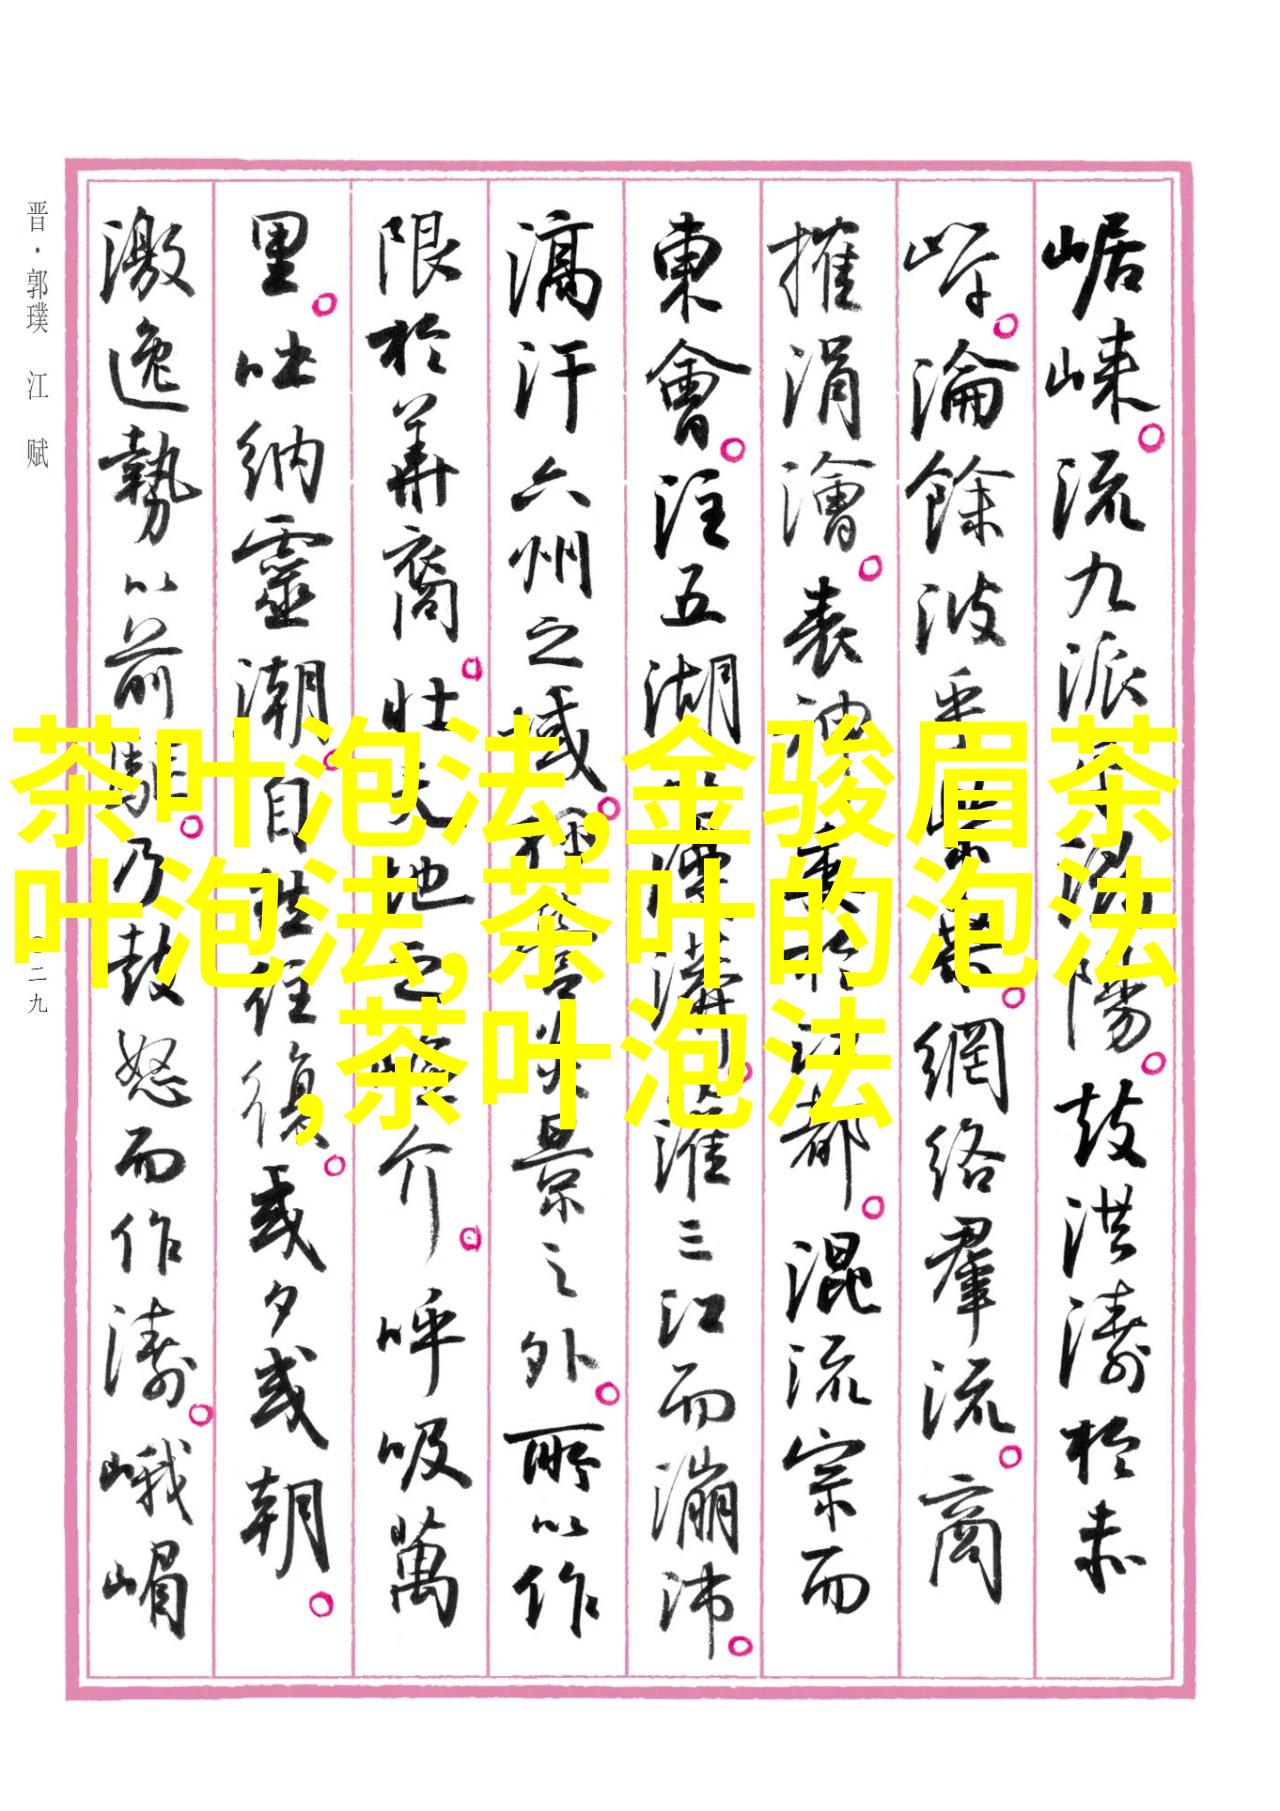 崌崍。流九派乎潯陽。鼓洪濤於赤
岸。淪餘波乎柴桑。網絡羣流。商
搉涓澮。表神委於江都。混流宗而
東會。注五湖以漫漭。灌三江而漰沛。
滈汗六州之域。經營炎景之外。所以作
限於華裔。壯天地之嶮介。呼吸萬
里。吐納靈潮。自然往復。或夕或朝。
激逸勢以前驅。乃鼓怒而作濤。峨嵋
晋·郭璞 江 赋
二九
茶叶泡法,金骏眉茶
叶泡法,茶叶的泡法
,茶叶泡法